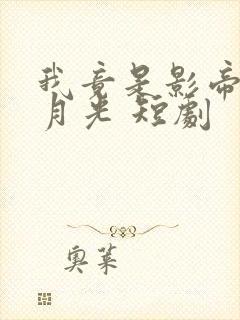 我竟是影帝
月光 短劇
奧萊